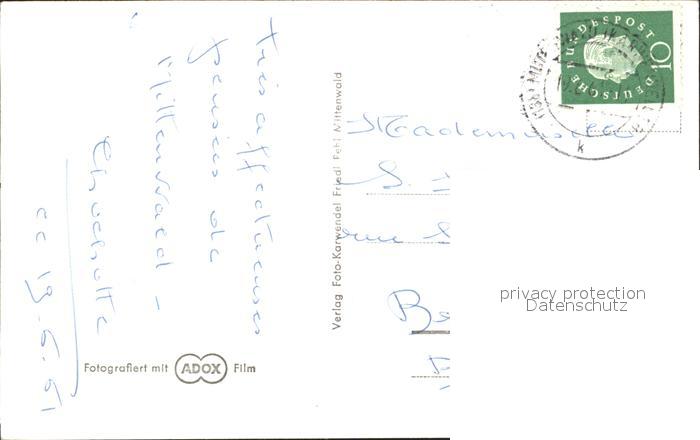 Très affectueuses
pensées de
Mittenwald -
ce 19.6.61
Fotografiert mit ADOX Film
Verlag Foto-Karwendel Friedl Fehl Mittenwald
DEUTSCHE BUNDESPOST
10
k
Mademoiselle
S.
rue
privacy protection
Datenschutz